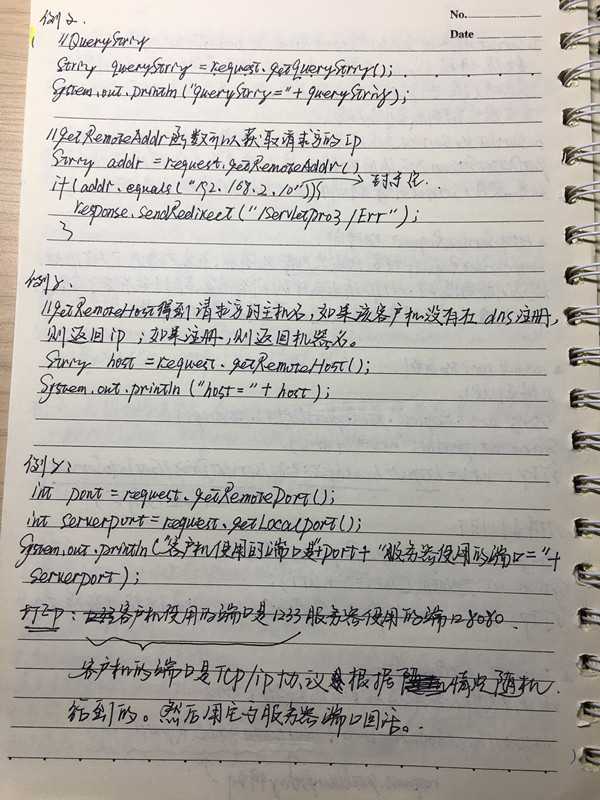 No.
Date
例2.
//QueryString
String queryString = request.getQueryString();
System.out.println("queryString="+ queryString);
//getRemoteAddr函数可以获取请求方的IP
String addr = request.getRemoteAddr()
if(addr.equals("192.168.2.10")){ → 封杀它.
response.sendRedirect("/Servletpro3/Err");
}
例3.
//getRemoteHost得到请求方的主机名,如果该客户机没有在dns注册,
则返回ip;如果注册,则返回机器名。
String host = request.getRemoteHost();
System.out.println("host="+ host);
例4:
int port = request.getRemotePort();
int serverport = request.getLocalport();
System.out.println("客户机使用的端口是"+port+"服务器使用的端口="+
serverport);
打印:客户机使用的端口是1233服务器使用的端口是8080.
客户机的端口是TCP/ip协议根据情况随机
得到的。然后用它与服务器端口回话.